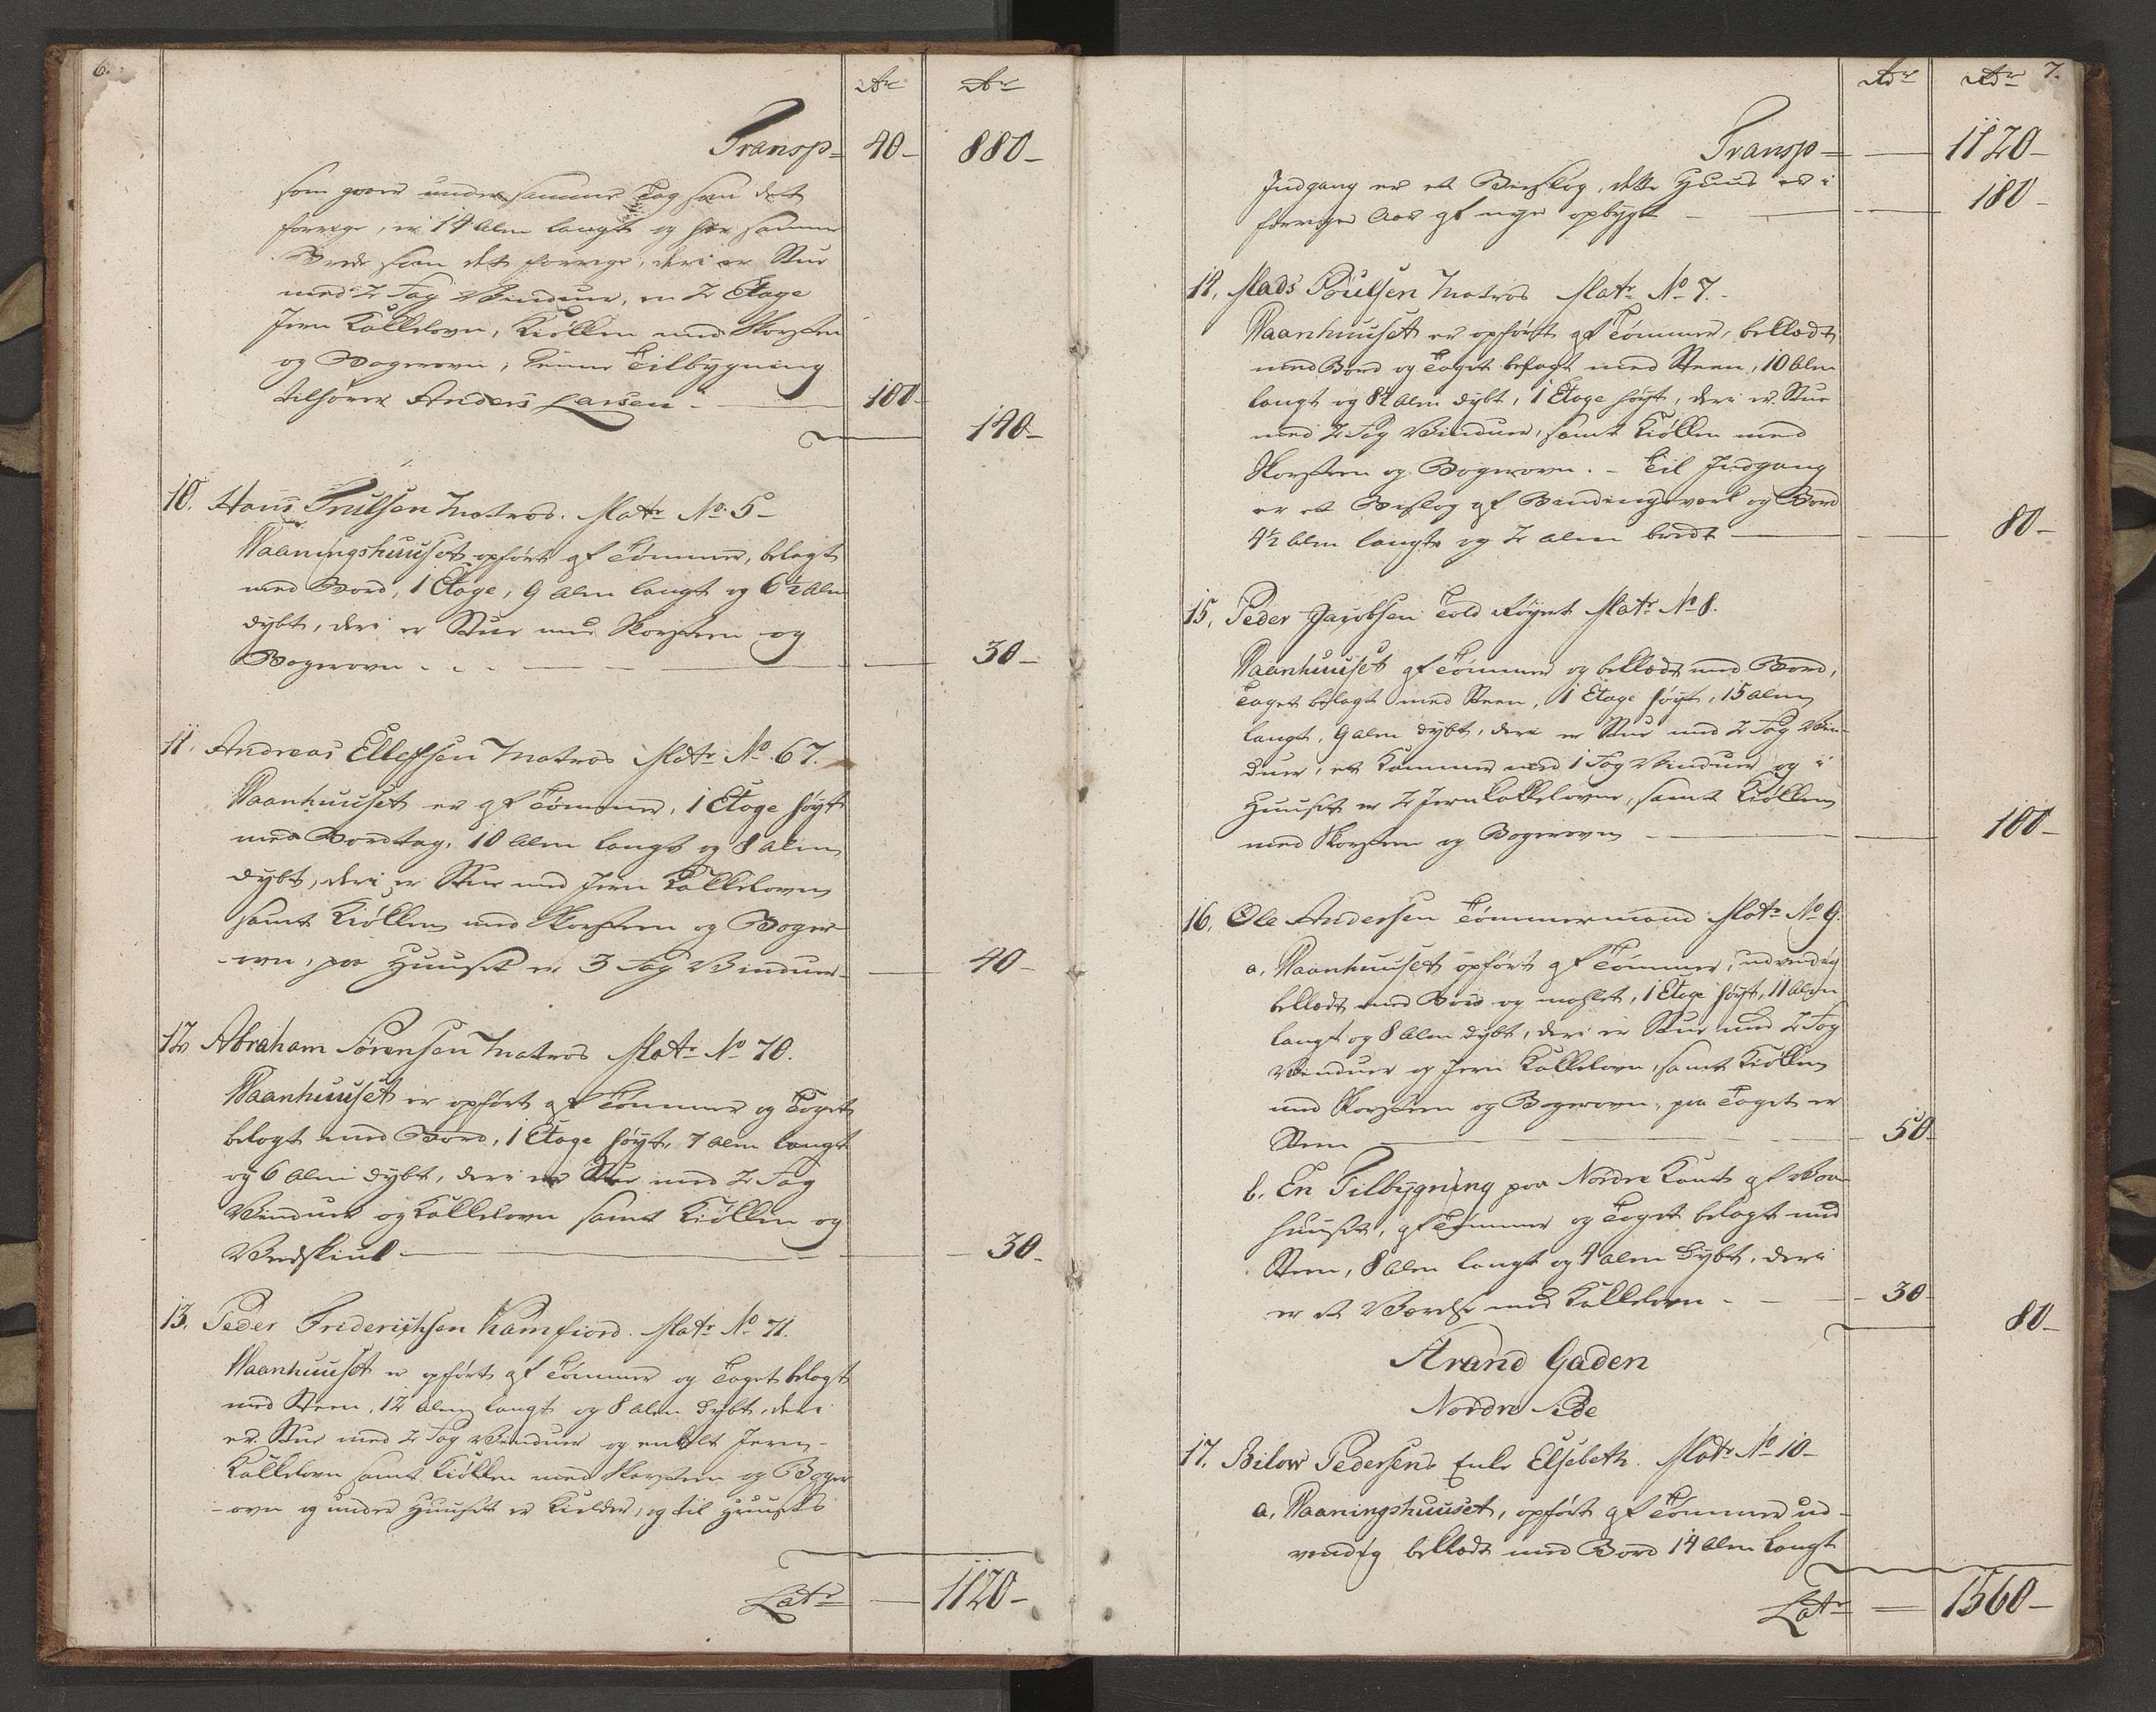 6.
Rdr Rdr
Transp= 40- 880-
som gaaer under samme Tag som det
forrige, er 14 Alen langt og har samme
Brede som det forrige, deri er Stue
med 2 Fag Vinduer, en 2 Etage
Jern Kakkelovn, Kiøkken med Skorsteen
og Bagerovn, denne Tilbygning
tilhører Anders Larsen - 100-
140-
10. Hans Trulsen Matros. Matr No. 5-
Vaaningshuuset opført af Tømmer, belagt
med Bord, 1 Etage, 9 Alen langt og 6½ Alen
dybt, deri er Stue med Skorsteen og
Bagerovn - - - 30-
11. Andreas Ellefsen Matros Matr No. 67.
Vaanhuuset er af Tømmer, 1 Etage høyt
med Bordtag, 10 Alen langt og 8 Alen
dybt, deri er Stue med Jern Kakkelovn
samt Kiøkken med Skorsteen og Bager-
-ovn, paa Huuset er 3 Fag Vinduer- 40-
12 Abraham Sørensen Matros Matr No 70.
Vaanhuuset er opført af Tømmer og Taget
belagt med Bord, 1 Etage høyt, 7 Alen langt
og 6 Alen dybt, deri er Stue med 2 Fag
Vinduer og Kakkelovn samt Kiøkken og
Vedskiul - 30-
13. Peder Friderichsen Kamfiord. Matr No 71.
Vaanhuuset er opført af Tømmer og Taget belagt
med Steen, 12 Alen langt og 8 Alen dybt, deri
er Stue med 2 Fag Vinduer og enkelt Jern-
Kakkelovn samt Kiøkken med Skorsteen og Bager
-ovn og under Huuset er Kielder, og til Huusets
Latr - 1120-
7.
Rdr Rdr
Transp= 1120-
Indgang er et Bieslag, dette Huus er i
forrige Aar af nye opbygt - 180-
14. Mads Poulsen Matros Matr No 7.-
Vaanhuuset er opført af Tømmer, beklædt
med Bord og Taget belagt med Steen, 10 Alen
langt og 8½ Alen dybt, 1 Etage høyt, deri er Stue
med 2 Fag Vinduer, samt Kiøkken med
Skorsteen og Bagerovn. - Til Indgang
er et Bislag af Bindingsverk og Bord
4½ Alen langt og 2 Alen bredt - 80-
15. Peder Jacobsen Told Røyert Matr No 8.
Vaanhuuset af Tømmer og beklædt med Bord,
Taget belagt med Steen, 1 Etage høyt, 15 Alen
langt, 9 Alen dybt, deri er Stue med 2 Fag Vin-
duer, et Kammer med 1 Fag Vinduer og i
Huuset er 2 Jernkakkelovne, samt Kiøkken
med Skorsteen og Bagerovn - 100-
16. Ole Andersen Tømmermand Matr No 9.
a. Vaanhuuset opført af Tømmer, udvendig
beklædt med Bord og mahlet, 1 Etage høyt, 11 Alen
langt og 8 Alen dybt, deri er Stue med 2 Fag
Vinduer og Jern Kakkelovn, samt Kiøkken
med Skorsteen og Bagerovn, paa Taget er
Steen - 50-
b. En Tilbygning paa Nordre Kant af Vaan-
huuset, af Tømmer og Taget belagt med
Steen, 8 Alen langt og 4 Alen dybt, deri
er et Værelse med Kakkelovn - 30-
80-
Strand Gaden
Nordre Side
17. Bilow Pedersens Enke Elsebeth. Matr No 10-
a. Vaaningshuuset, opført af Tømmer ud-
vendig beklædt med Bord 14 Alen langt
Latr = 1560-